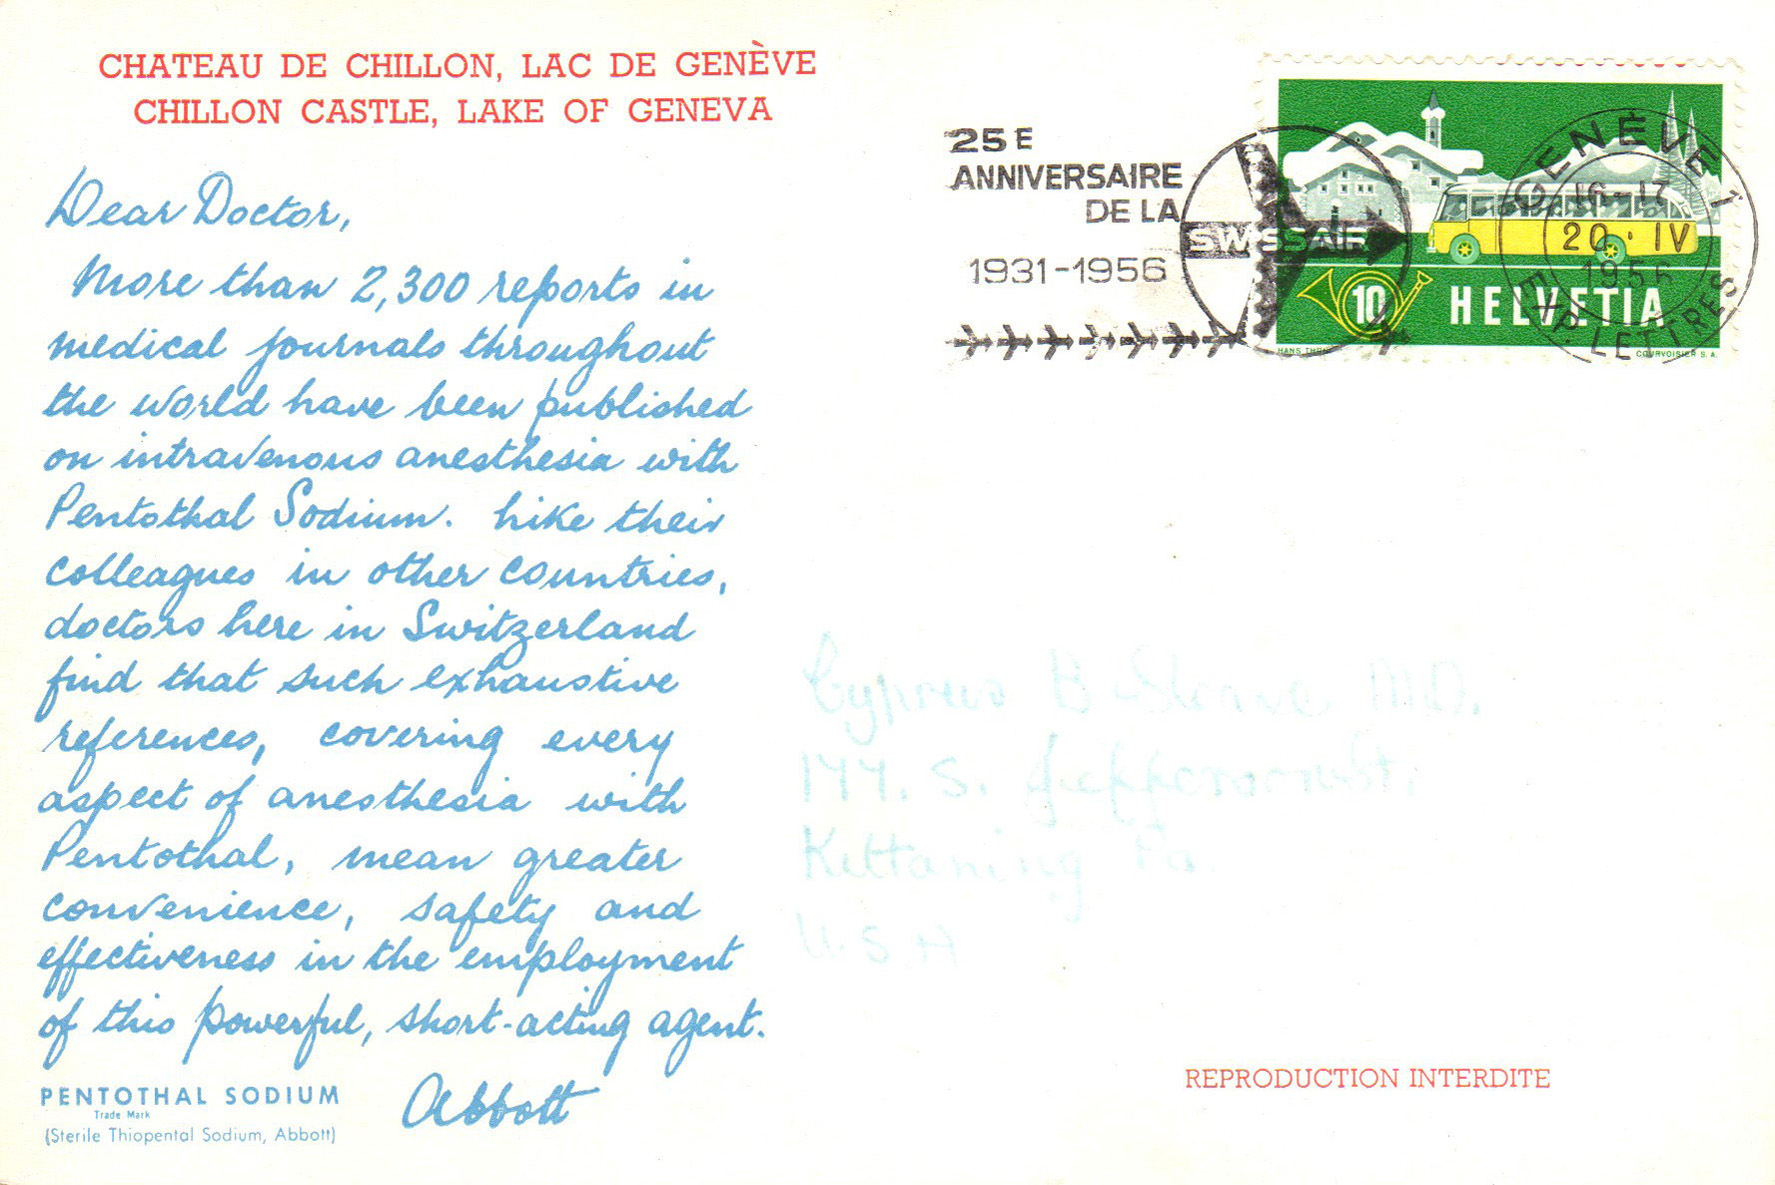 CHATEAU DE CHILLON, LAC DE GENÈVE
CHILLON CASTLE, LAKE OF GENEVA
Dear Doctor,
More than 2,300 reports in
medical journals throughout
the world have been published
on intravenous anesthesia with
Pentothal Sodium. Like their
colleagues in other countries,
doctors here in Switzerland
find that such exhaustive
references, covering every
aspect of anesthesia with
Pentothal, mean greater
convenience, safety and
effectiveness in the employment
of this powerful, short-acting agent.
Abbott
PENTOTHAL SODIUM
Trade Mark
(Sterile Thiopental Sodium, Abbott)
25E
ANNIVERSAIRE
DE LA
SWISSAIR
1931-1956
GENÈVE 1
16-17
20·IV
1956
EXP. LETTRES
10 HELVETIA
HANS
COURVOISIER S.A.
B M.D.
177. S.
Kittaning Pa
U.S.A
REPRODUCTION INTERDITE